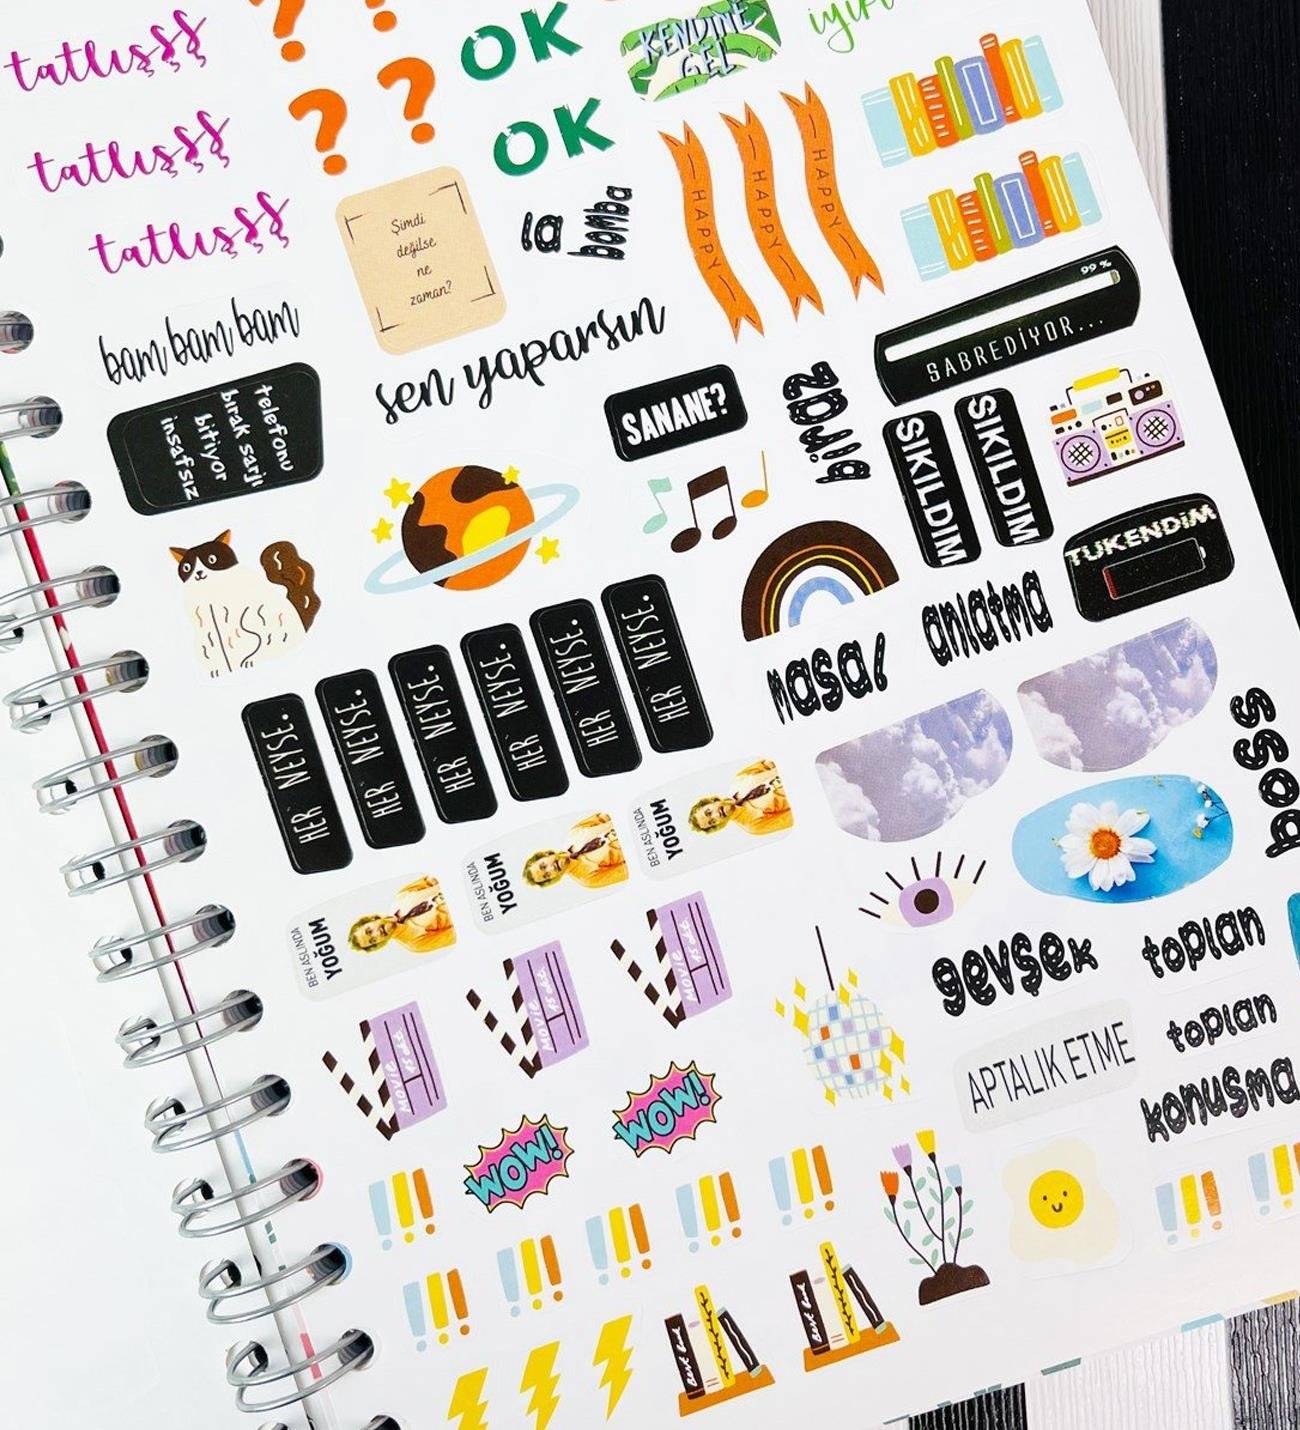 tatlışşş
tatlışşş
tatlışşş
?
?
?
?
OK
OK
KENDİNE
GEL
Şimdi
değilse
ne
zaman?
la
bomba
HAPPY
HAPPY
HAPPY
99 %
SABREDİYOR...
bam bam bam
sen yaparsın
telefonu
bırak şarjı
bitiyor
insafsız
SANANE?
SIKILDIM
SIKILDIM
TÜKENDİM
anlatma
masal
HER NEYSE.
HER NEYSE.
HER NEYSE.
HER NEYSE.
HER NEYSE.
HER NEYSE.
BEN ASLINDA
YOĞUM
BEN ASLINDA
YOĞUM
BEN ASLINDA
YOĞUM
boss
MOVIE
MOVIE
MOVIE
gevşek
toplan
toplan
APTALIK ETME
konuşma
WOW!
WOW!
!!!
!!!
!!!
!!!
!!!
!!!
!!!
!!!